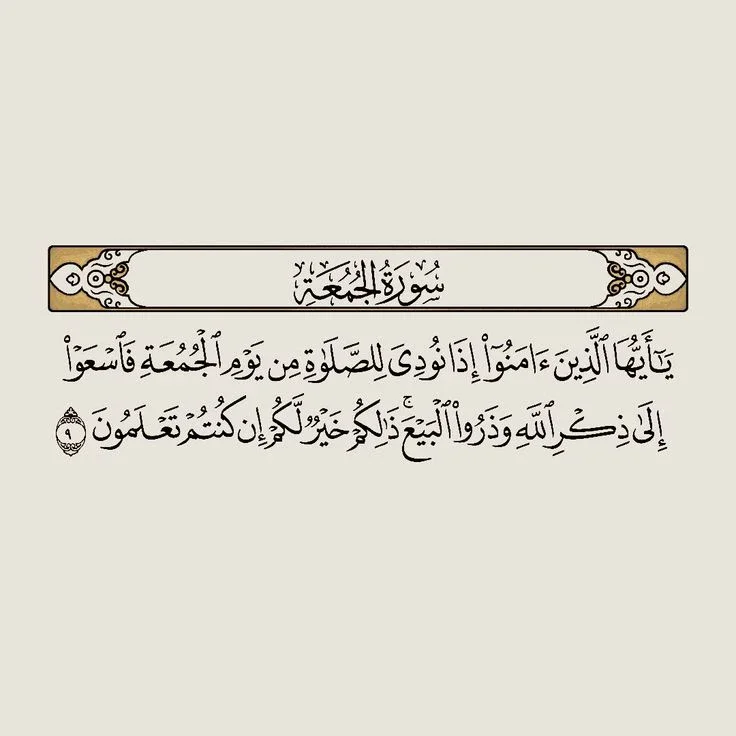 سُورَةُ الجُمُعَةِ
يَـٰٓأَيُّهَا ٱلَّذِينَ ءَامَنُوٓا۟ إِذَا نُودِىَ لِلصَّلَوٰةِ مِن يَوْمِ ٱلْجُمُعَةِ فَٱسْعَوْا۟
إِلَىٰ ذِكْرِ ٱللَّهِ وَذَرُوا۟ ٱلْبَيْعَ ۚ ذَٰلِكُمْ خَيْرٌ لَّكُمْ إِن كُنتُمْ تَعْلَمُونَ ٩